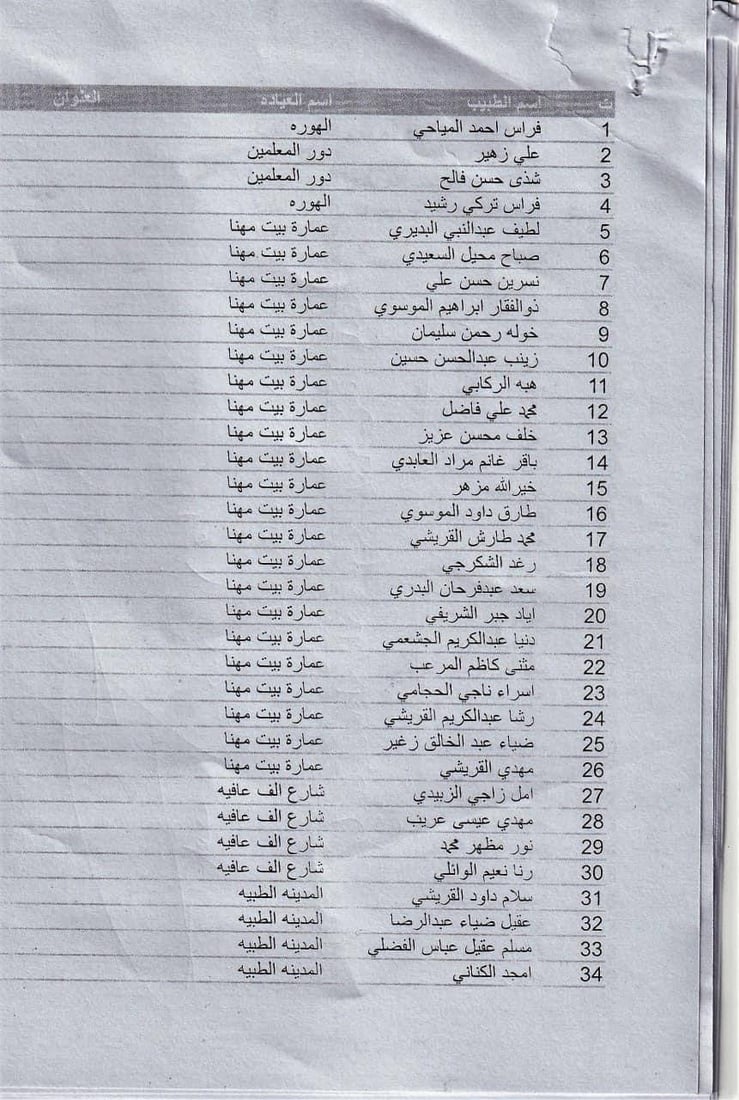 ت اسم الطبيب اسم العياده العنوان
1 فراس احمد المياحي الهوره
2 علي زهير دور المعلمين
3 شذى حسن فالح دور المعلمين
4 فراس تركي رشيد الهوره
5 لطيف عبدالنبي البديري عمارة بيت مهنا
6 صباح محيل السعيدي عمارة بيت مهنا
7 نسرين حسن علي عمارة بيت مهنا
8 ذوالفقار ابراهيم الموسوي عمارة بيت مهنا
9 خوله رحمن سليمان عمارة بيت مهنا
10 زينب عبدالحسن حسين عمارة بيت مهنا
11 هبه الركابي عمارة بيت مهنا
12 محمد علي فاضل عمارة بيت مهنا
13 خلف محسن عزيز عمارة بيت مهنا
14 باقر غانم مراد العابدي عمارة بيت مهنا
15 خيرالله مزهر عمارة بيت مهنا
16 طارق داود الموسوي عمارة بيت مهنا
17 محمد طارش القريشي عمارة بيت مهنا
18 رغد الشكرجي عمارة بيت مهنا
19 سعد عبدفرحان البدري عمارة بيت مهنا
20 اياد جبر الشريفي عمارة بيت مهنا
21 دنيا عبدالكريم الجشعمي عمارة بيت مهنا
22 مثنى كاظم المرعب عمارة بيت مهنا
23 اسراء ناجي الحجامي عمارة بيت مهنا
24 رشا عبدالكريم القريشي عمارة بيت مهنا
25 ضياء عبد الخالق زغير عمارة بيت مهنا
26 مهدي القريشي عمارة بيت مهنا
27 امل زاجي الزبيدي شارع الف عافيه
28 مهدي عيسى عريب شارع الف عافيه
29 نور مظهر محمد شارع الف عافيه
30 رنا نعيم الوائلي شارع الف عافيه
31 سلام داود القريشي المدينه الطبيه
32 عقيل ضياء عبدالرضا المدينه الطبيه
33 مسلم عقيل عباس الفضلي المدينه الطبيه
34 امجد الكناني المدينه الطبيه